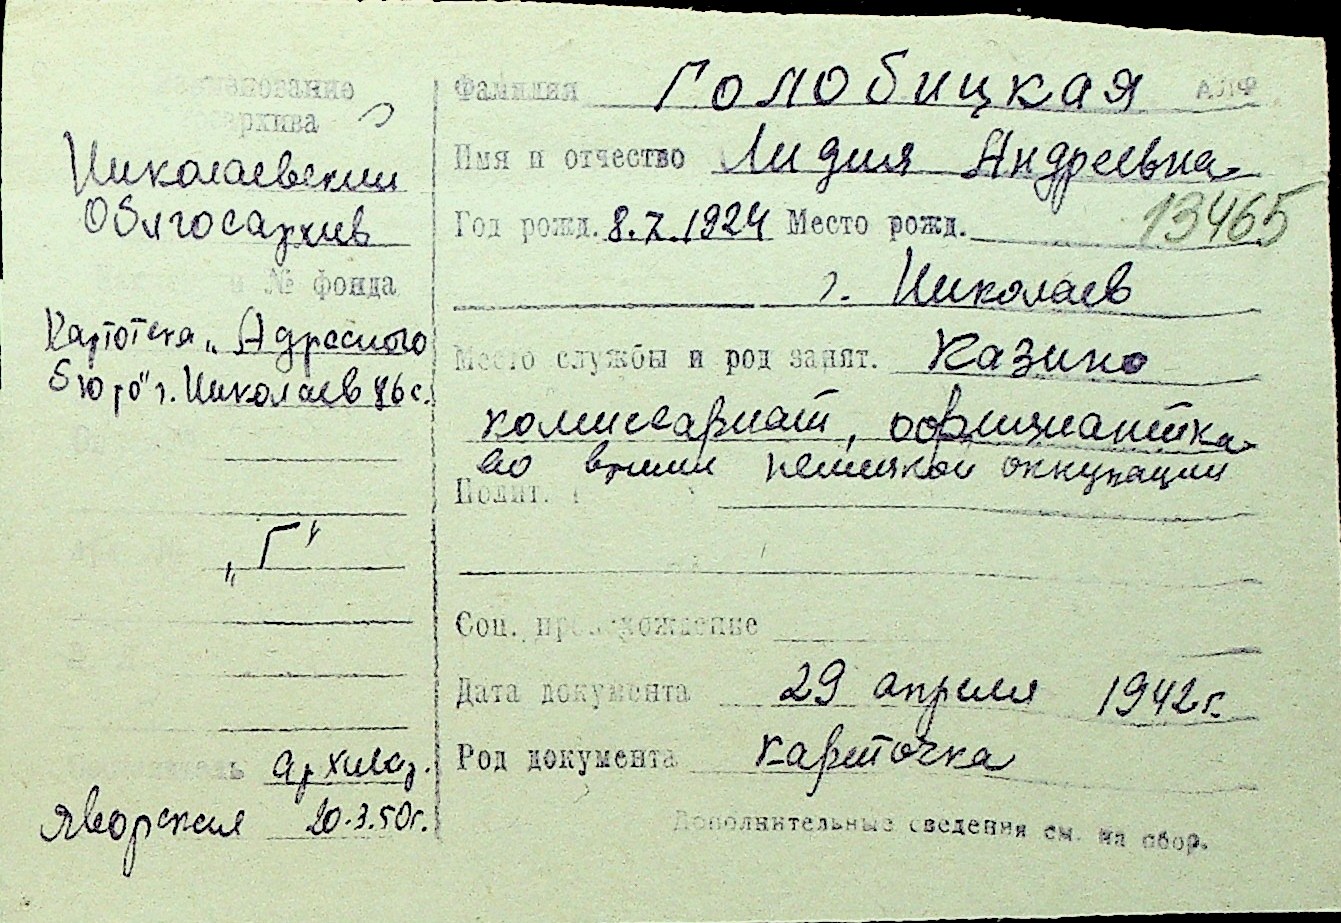 Наименование
госархива
Николаевский
Облгосархив
№ фонда
Картотека „Адресного
бюро" г. Николаев 86 с.
„Г"
архив.
Яворская 20.3.50г.
Фамилия Голобицкая АЛФ
Имя и отчество Лидия Андреевна
Год рожд. 8.7.1924 Место рожд. 13465
г. Николаев
Место службы и род занят. Казино
комиссариат, официантка
во время немецкой оккупации
Полит.
Соц. происхождение
Дата документа 29 апреля 1942г.
Род документа карточка
Дополнительные сведения см. на обор.